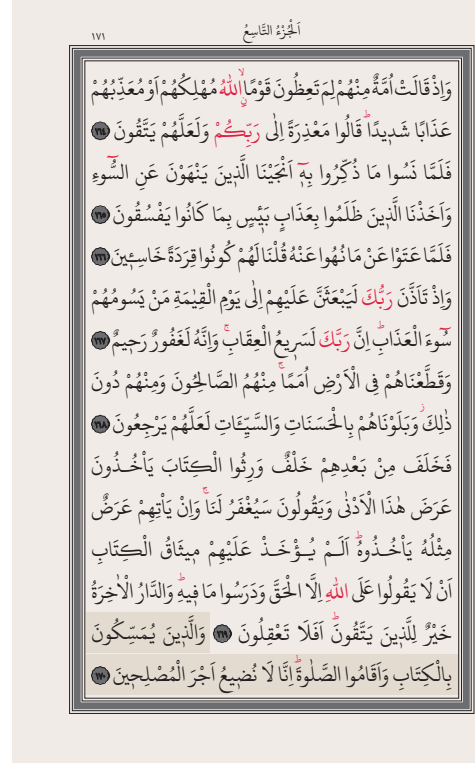 اَلْجُزْءُ التَّاسِعُ
١٧١
وَاِذْ قَالَتْ اُمَّةٌ مِنْهُمْ لِمَ تَعِظُونَ قَوْمًاۙ اللّٰهُ مُهْلِكُهُمْ اَوْ مُعَذِّبُهُمْ
عَذَابًا شَدٖيدًاؕ قَالُوا مَعْذِرَةً اِلٰى رَبِّكُمْ وَلَعَلَّهُمْ يَتَّقُونَ ١٦٤
فَلَمَّا نَسُوا مَا ذُكِّرُوا بِهٖٓ اَنْجَيْنَا الَّذٖينَ يَنْهَوْنَ عَنِ السُّٓوءِ
وَاَخَذْنَا الَّذٖينَ ظَلَمُوا بِعَذَابٍ بَـٖٔيسٍ بِمَا كَانُوا يَفْسُقُونَ ١٦٥
فَلَمَّا عَتَوْا عَنْ مَا نُهُوا عَنْهُ قُلْنَا لَهُمْ كُونُوا قِرَدَةً خَاسِـٖٔينَ ١٦٦
وَاِذْ تَاَذَّنَ رَبُّكَ لَيَبْعَثَنَّ عَلَيْهِمْ اِلٰى يَوْمِ الْقِيٰمَةِ مَنْ يَسُومُهُمْ
سُٓوءَ الْعَذَابِؕ اِنَّ رَبَّكَ لَسَرٖيعُ الْعِقَابِۚ وَاِنَّهُ لَغَفُورٌ رَحٖيمٌ ١٦٧
وَقَطَّعْنَاهُمْ فِى الْاَرْضِ اُمَمًاۚ مِنْهُمُ الصَّالِحُونَ وَمِنْهُمْ دُونَ
ذٰلِكَؗ وَبَلَوْنَاهُمْ بِالْحَسَنَاتِ وَالسَّيِّـَٔاتِ لَعَلَّهُمْ يَرْجِعُونَ ١٦٨
فَخَلَفَ مِنْ بَعْدِهِمْ خَلْفٌ وَرِثُوا الْكِتَابَ يَاْخُذُونَ
عَرَضَ هٰذَا الْاَدْنٰى وَيَقُولُونَ سَيُغْفَرُ لَنَاۚ وَاِنْ يَاْتِهِمْ عَرَضٌ
مِثْلُهُ يَاْخُذُوهُؕ اَلَمْ يُؤْخَذْ عَلَيْهِمْ مٖيثَاقُ الْكِتَابِ
اَنْ لَا يَقُولُوا عَلَى اللّٰهِ اِلَّا الْحَقَّ وَدَرَسُوا مَا فٖيهِؕ وَالدَّارُ الْاٰخِرَةُ
خَيْرٌ لِلَّذٖينَ يَتَّقُونَؕ اَفَلَا تَعْقِلُونَ ١٦٩ وَالَّذٖينَ يُمَسِّكُونَ
بِالْكِتَابِ وَاَقَامُوا الصَّلٰوةَؕ اِنَّا لَا نُضٖيعُ اَجْرَ الْمُصْلِحٖينَ ١٧٠